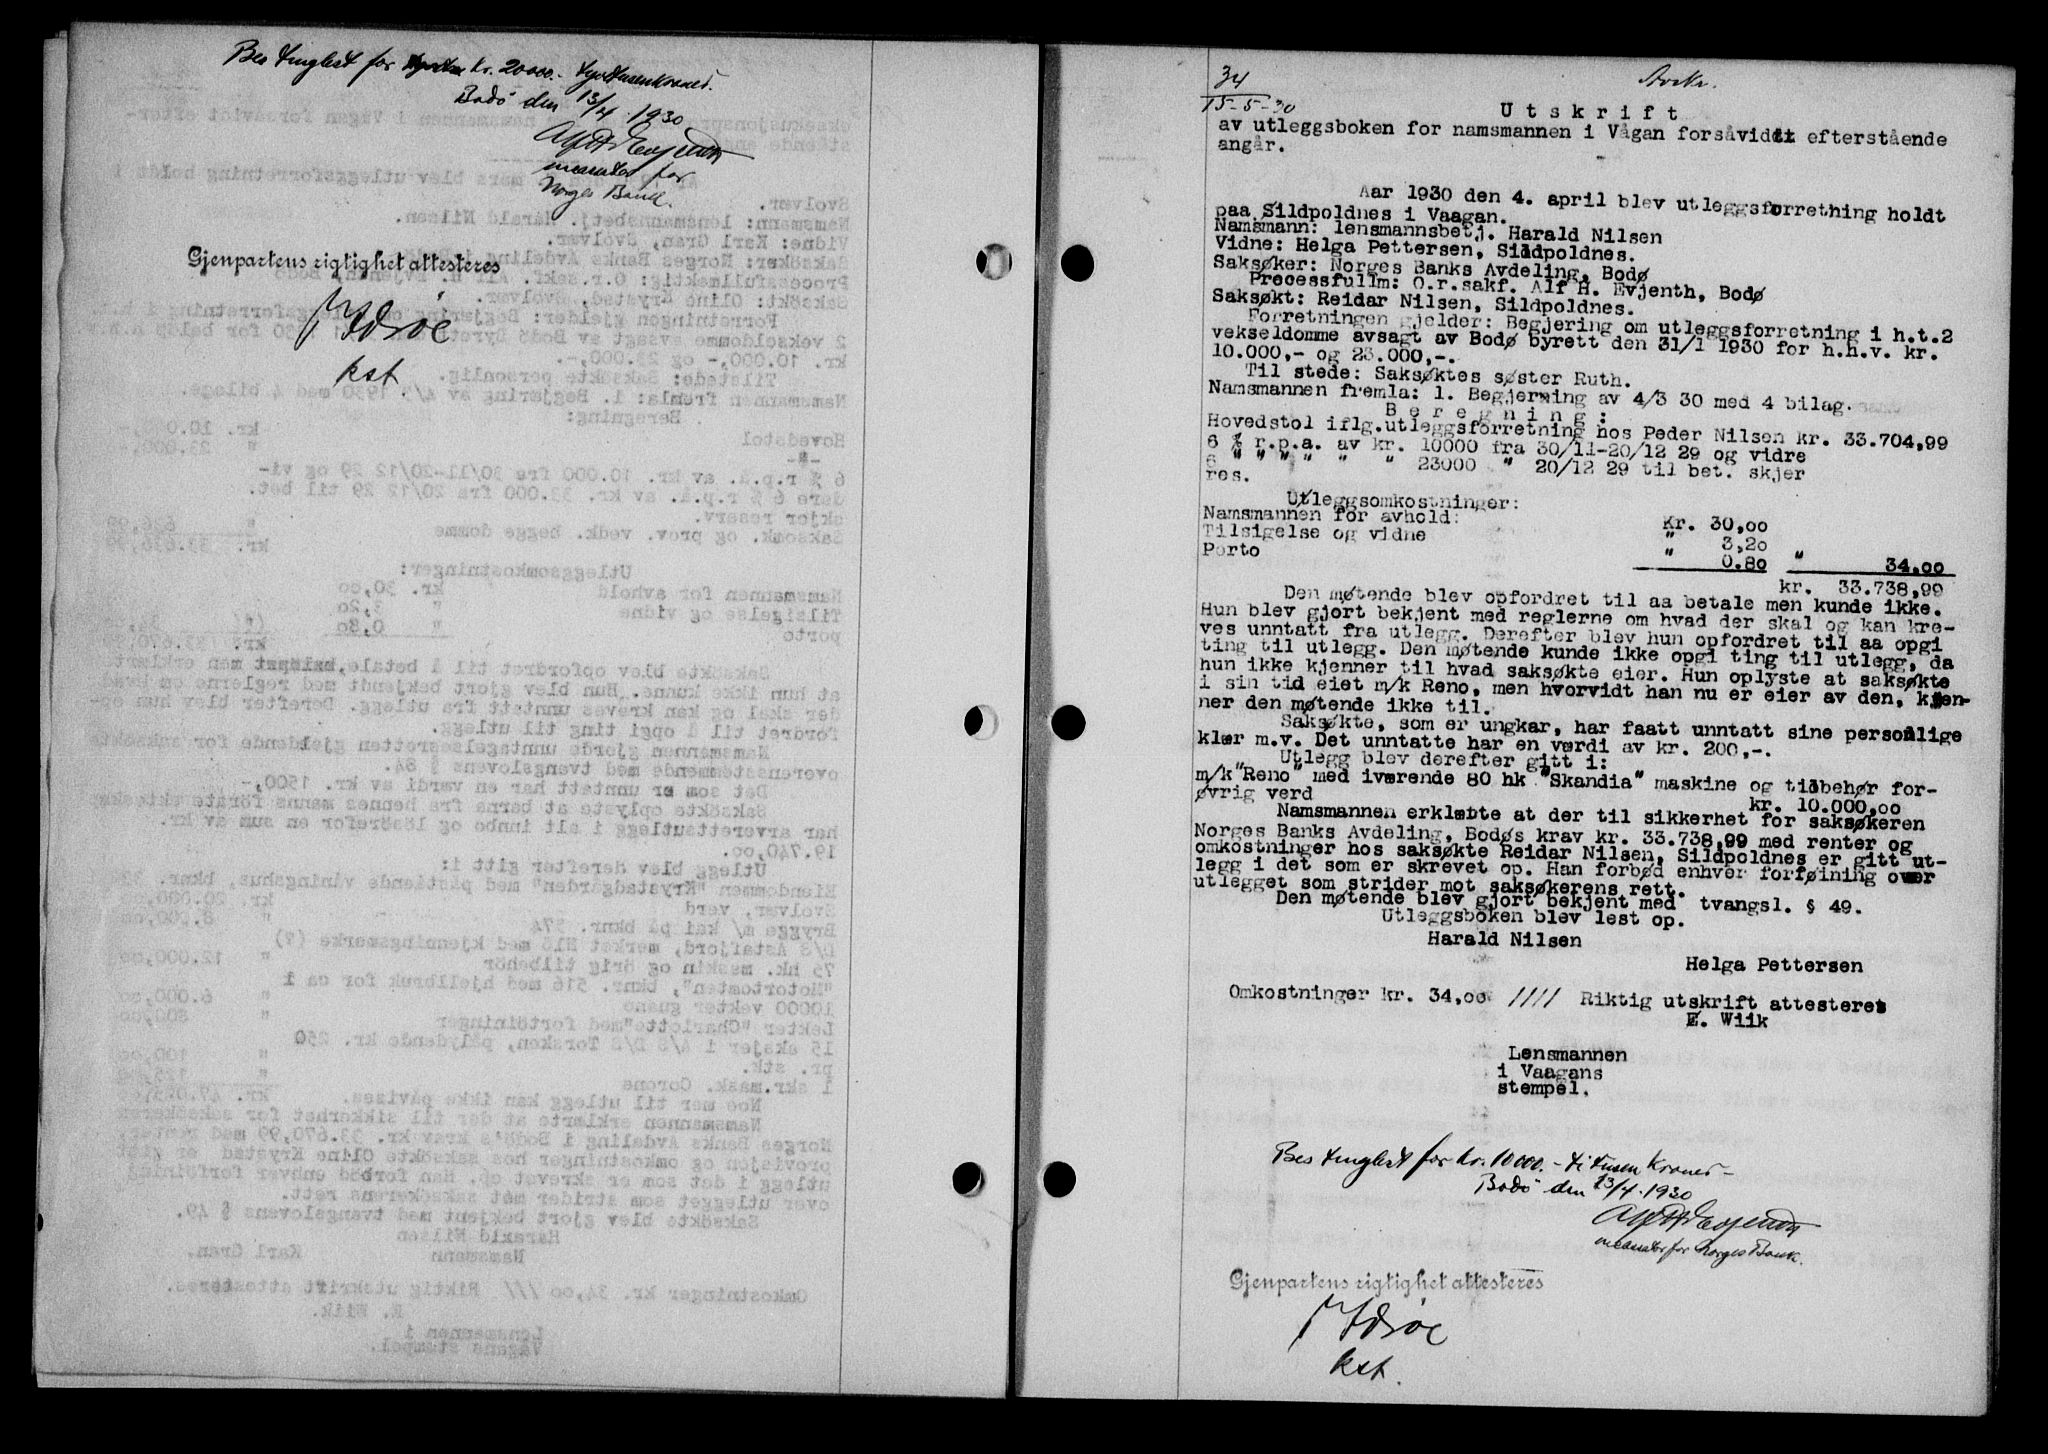 Bes tinglest for kr. 20000.- tyvetusenkroner.
Bodö den 13/4 1930
Alf H Evjenth
mandatar for
Norges Bank.
Gjenpartens rigtighet attesteres
kst
34
15-5-30
Avskr.
Utskrift
av utleggsboken for namsmannen i Vågan forsåvidt efterstående
angår.
Aar 1930 den 4. april blev utleggsforrething holdt
paa Sildpoldnes i Vaagan.
Namsmann: lensmannsbetj. Harald Nilsen
Vidne: Helga Pettersen, Sildpoldnes.
Saksøker: Norges Banks Avdeling, Bodø
Processfullm: O.r.sakf. Alf H. Evjenth, Bodø
Saksøkt: Reidar Nilsen, Sildpoldnes.
Forretningen gjelder: Begjering om utleggsforretning i h.t.2
vekseldomme avsagt av Bodø byrett den 31/1 1930 for h.h.v. kr.
10.000,- og 23.000,-.
Til stede: Saksøktes søster Ruth.
Namsmannen fremla: 1. Begjerning av 4/3 30 med 4 bilag.
Beregning:
Hovedstol iflg.utleggsforretning hos Peder Nilsen kr. 33.704,99
6 % r.p.a. av kr. 10000 fra 30/11-20/12 29 og vidre
6 " " " " " " 23000 " 20/12 29 til bet. skjer
res.
Utleggsomkostninger:
Namsmannen for avhold: Kr. 30,00
Tilsigelse og vidne " 3,20
Porto " 0.80 " 34,00
kr. 33.738,99
Den møtende blev opfordret til aa betale men kunde ikke.
Hun blev gjort bekjent med reglerne om hvad der skal og kan kre-
ves unntatt fra utlegg. Derefter blev hun opfordret til aa opgi
ting til utlegg. Den møtende kunde ikke opgi ting til utlegg, da
hun ikke kjenner til hvad saksøkte eier. Hun oplyste at saksøkte
i sin tid eiet m/k Reno, men hvorvidt han nu er eier av den, kjen-
ner den møtende ikke til.
Saksøkte, som er ungkar, har faatt unntatt sine personlige
klær m.v. Det unntatte har en værdi av kr. 200,-.
Utlegg blev derefter gitt i:
m/k "Reno" med iværende 80 hk "Skandia" maskine og tilbehør for-
øvrig verd kr. 10.000,00
Namsmannen erklæbte at der til sikkerhet for saksøkeren
Norges Banks Avdeling, Bodøs krav kr. 33.738,99 med renter og
omkostninger hos saksøkte Reidar Nilsen, Sildpoldnes er gitt ut-
legg i det som er skrevet op. Han forbød enhver forføining over
utlegget som strider mot saksøkerens rett.
Den møtende blev gjort bekjent med tvangsl. § 49.
Utleggsboken blev lest op.
Harald Nilsen
Helga Pettersen
Omkostninger kr. 34,00 //// Riktig utskrift attesteres
E. Wiik
Lensmannen
i Vaagans
stempel.
Bes tinglest for kr. 10000.- ti tusen kroner-
Bodö den 13/4. 1930
Alf H Evjenth
mandatar for Norges Bank.
Gjenpartens rigtighet attesteres
kst.